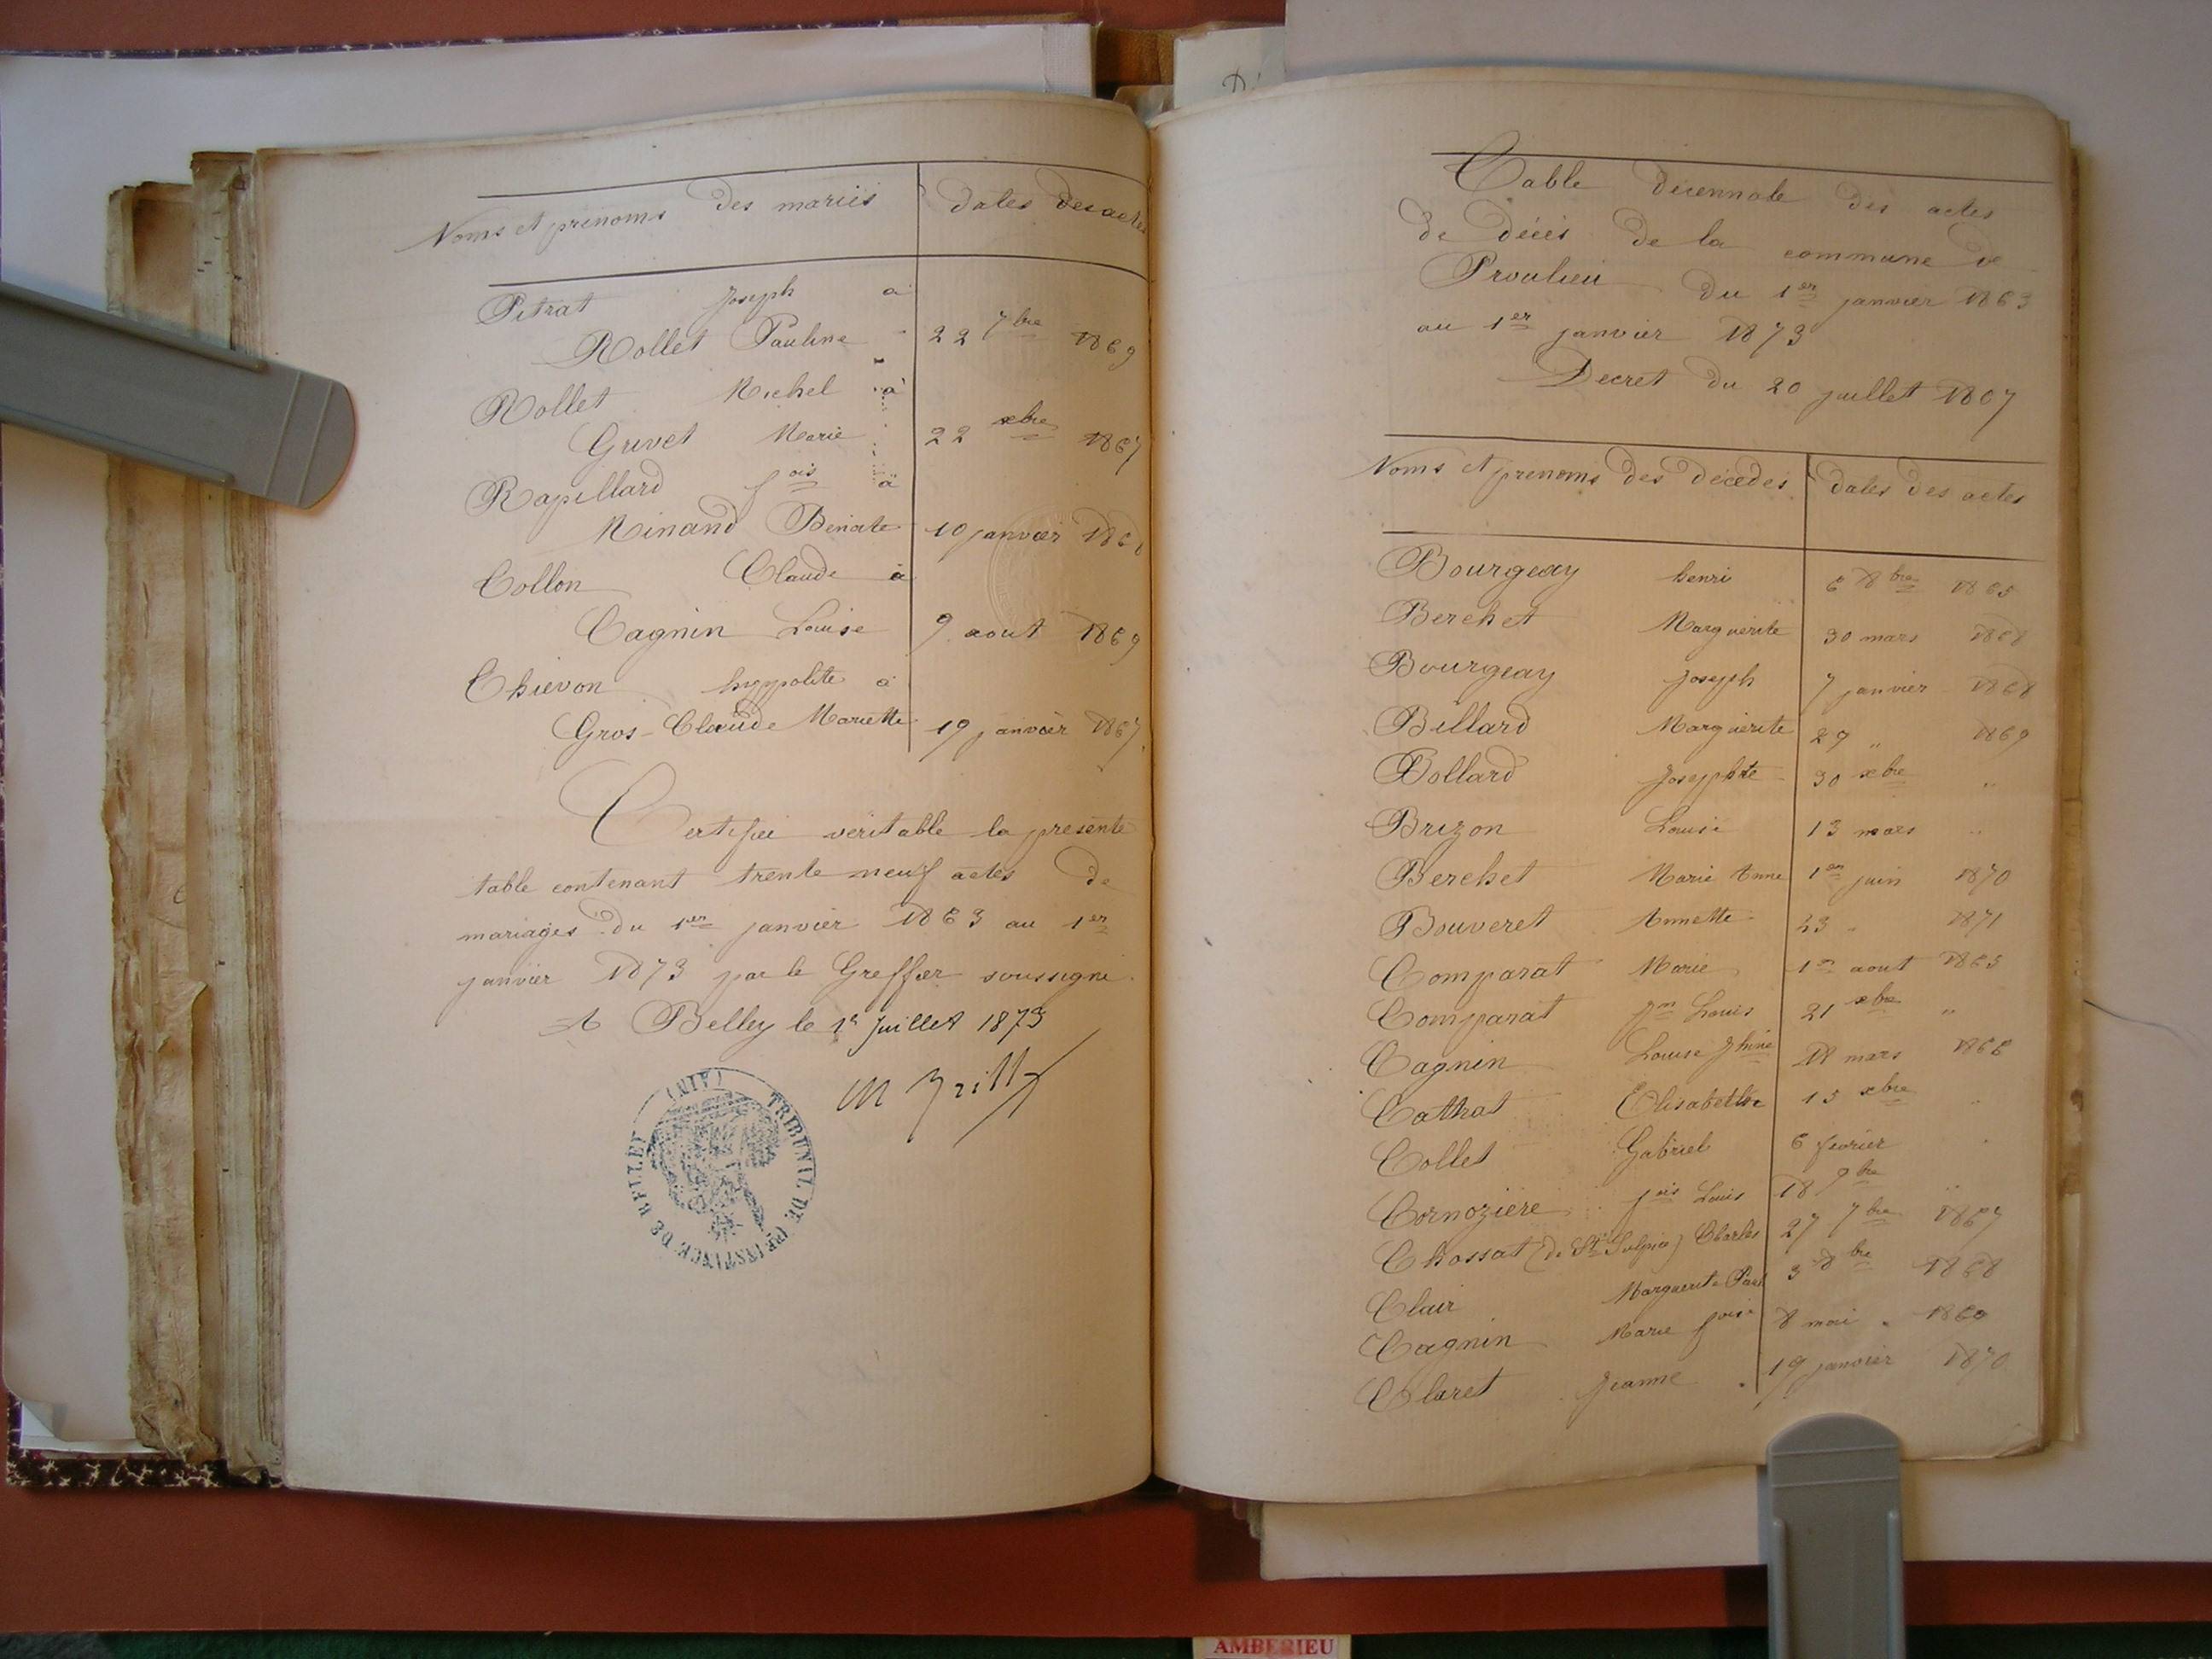 Noms et prénoms des mariés dates des actes
Pitrat Joseph à
Rollet Pauline 22 7bre 1869
Rollet Michel à
Grivet Marie 22 xbre 1867
Rapillard fois à
Minand Benoite 10 janvier
Collon Claude à
Cagnin Louise 9 aout 1869
Chievon hyppolite à
Gros-Claude Mariette 19 janvier 1867
Certifiée véritable la présente
table contenant trente neuf actes de
mariages du 1er janvier 1863 au 1er
janvier 1873 par le Greffier soussigné
A Belley le 1er Juillet 1873
TRIBUNAL DE 1RE INSTANCE DE BELLEY (AIN)
Table décennale des actes
de décès de la commune de
Proulieu du 1er janvier 1863
au 1er janvier 1873
Decret du 20 juillet 1807
Noms et prénoms des décédés dates des actes
Bourgeay henri 6 8bre 1865
Berchet Marguérite 30 mars 1868
Bourgeay Joseph 7 janvier 1868
Billard Marguérite 29 " 1869
Bollard Josephte 30 xbre "
Brizon Louise 13 mars "
Berchet Marie Anne 1er juin 1870
Bouveret Annette 23 " 1871
Comparat Marie 1er aout 1865
Comparat Jn Louis 21 xbre "
Cagnin Louise Jhine 18 mars 1866
Cathrat Elisabethe 15 xbre "
Collet Gabriel 6 fevrier "
Cornozière fois Louis 18 9bre "
Chossat (de St Sulpice) Charles 27 7bre 1867
Clair Marguerite 3 8bre 1868
Cagnin Marie foise 8 mai
Claret Jeanne 19 janvier 1870
AMBERIEU